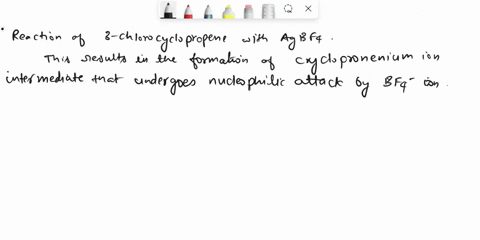 Reaction of 3-chlorocyclopropene with AgBF4.
This results in the formation of cryclopronenium ion
intermediate that undergoes nucleophilic attack by BF4- ion.